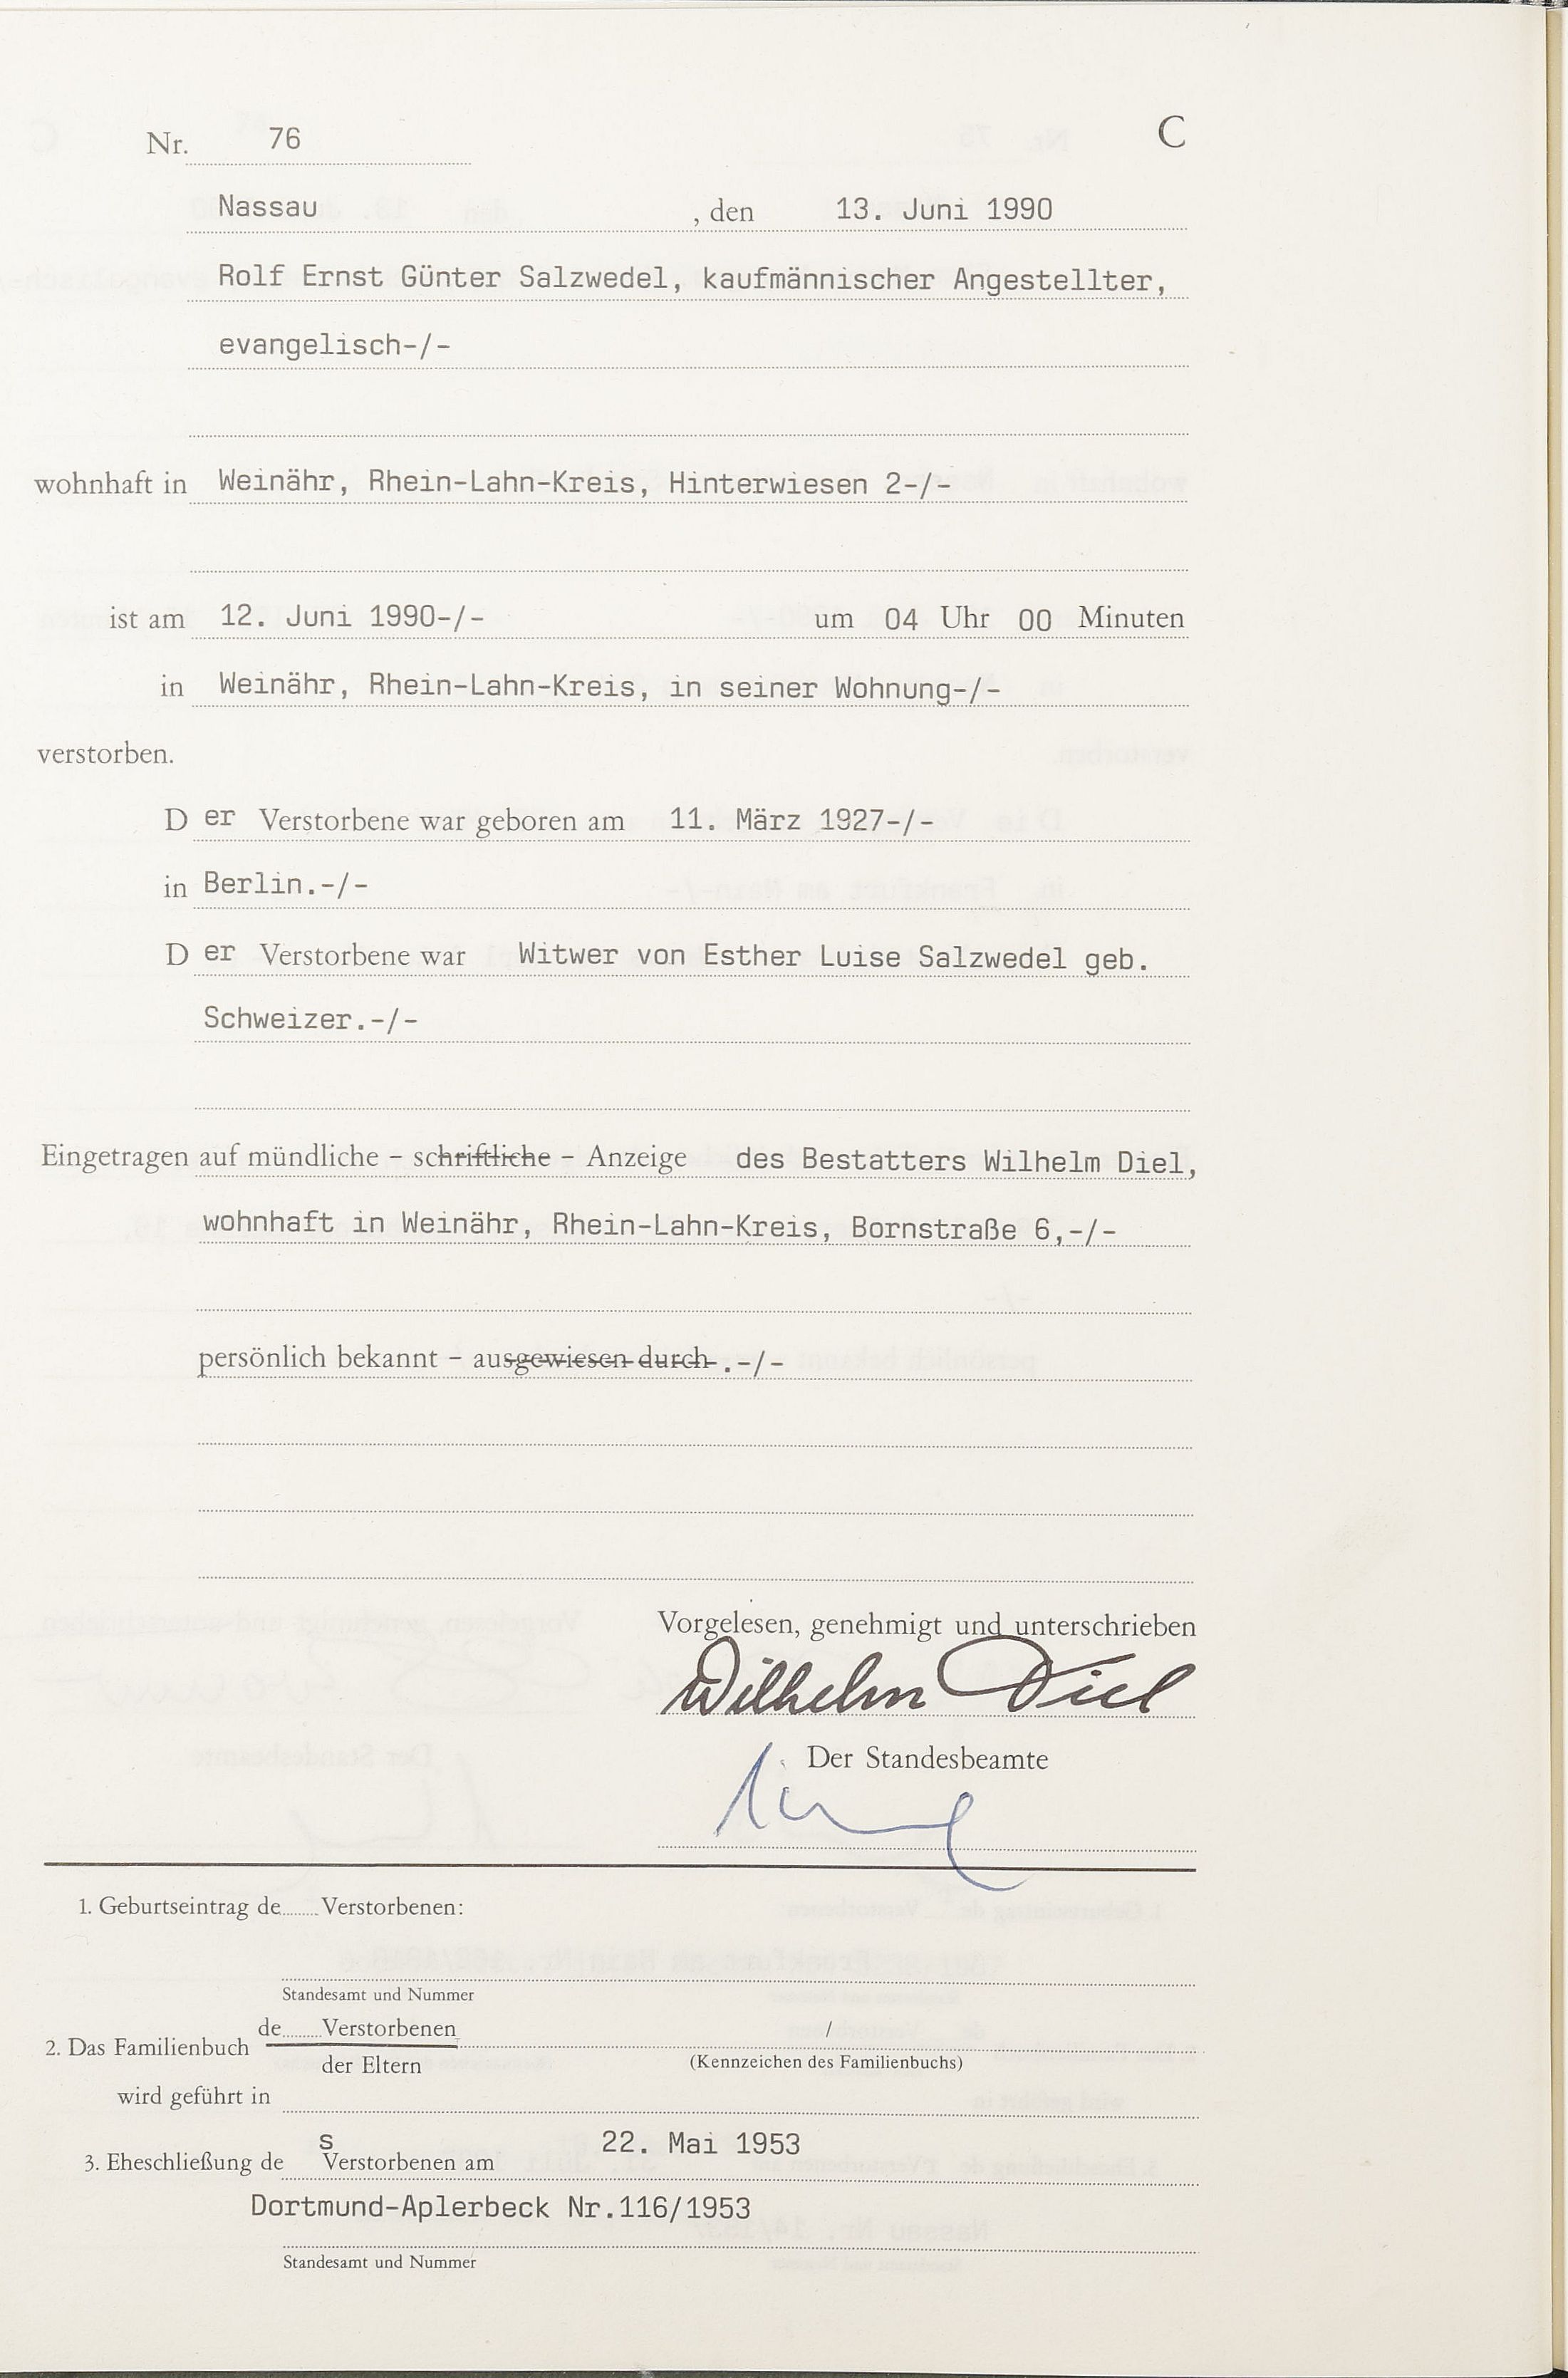 Nr. 76 C
Nassau , den 13. Juni 1990
Rolf Ernst Günter Salzwedel, kaufmännischer Angestellter,
evangelisch-/-
wohnhaft in Weinähr, Rhein-Lahn-Kreis, Hinterwiesen 2-/-
ist am 12. Juni 1990-/- um 04 Uhr 00 Minuten
in Weinähr, Rhein-Lahn-Kreis, in seiner Wohnung-/-
verstorben.
D er Verstorbene war geboren am 11. März 1927-/-
in Berlin.-/-
D er Verstorbene war Witwer von Esther Luise Salzwedel geb.
Schweizer.-/-
Eingetragen auf mündliche - schriftliche - Anzeige des Bestatters Wilhelm Diel,
wohnhaft in Weinähr, Rhein-Lahn-Kreis, Bornstraße 6,-/-
persönlich bekannt - ausgewiesen durch .-/-
Vorgelesen, genehmigt und unterschrieben
Wilhelm Diel
Der Standesbeamte
1. Geburtseintrag de........Verstorbenen:
Standesamt und Nummer
de........Verstorbenen /
2. Das Familienbuch
der Eltern (Kennzeichen des Familienbuchs)
wird geführt in
3. Eheschließung de s Verstorbenen am 22. Mai 1953
Dortmund-Aplerbeck Nr.116/1953
Standesamt und Nummer